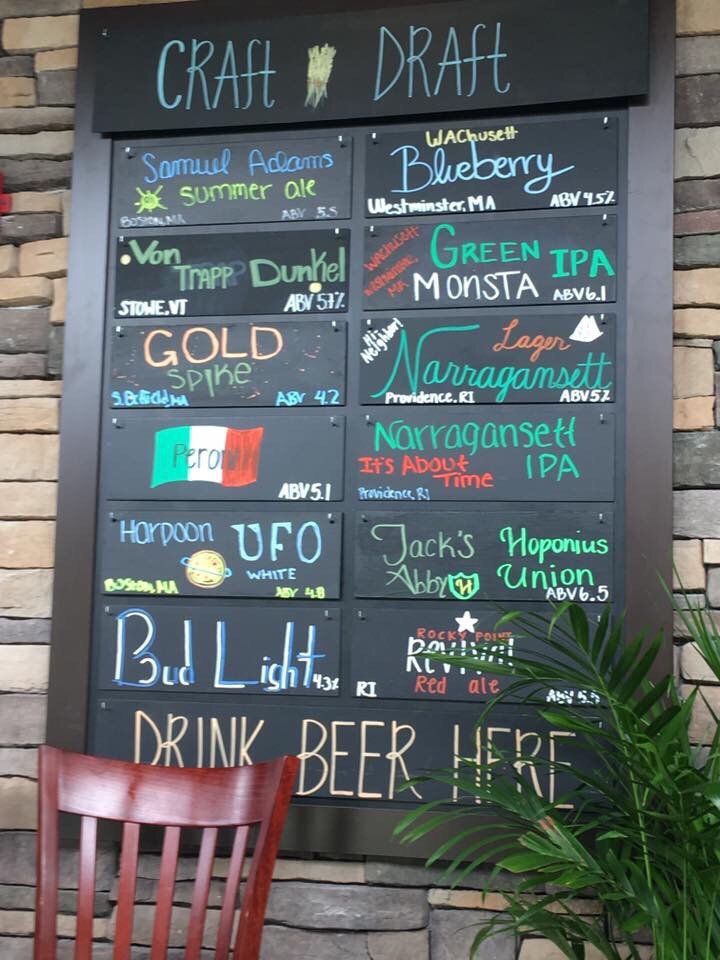 CRAft DRAft
Samuel Adams
Summer ale
BOSTON, MA ABV 5.5
Von
TRAPP Dunkel
STOWE, VT ABV 5.7%
GOLD
SPIKE
ABV 4.2
Peroni
ABV 5.1
Harpoon UFO
WHITE
BOSTON, MA ABV 4.8
Bud Light
4.3%
WAChusett
Blueberry
Westminster, MA ABV 4.5%
WAChusett
Westminster, MA
GREEN IPA
MONSTA
ABV 6.1
Hi-Neighbor!
Lager
Narragansett
Providence, RI ABV 5%
Narragansett
It's About
Time IPA
Providence, RI
Jack's Hoponius
Abby H Union
ABV 6.5
ROCKY POINT
REVIVAL
RI Red ale
DRINK BEER HERE